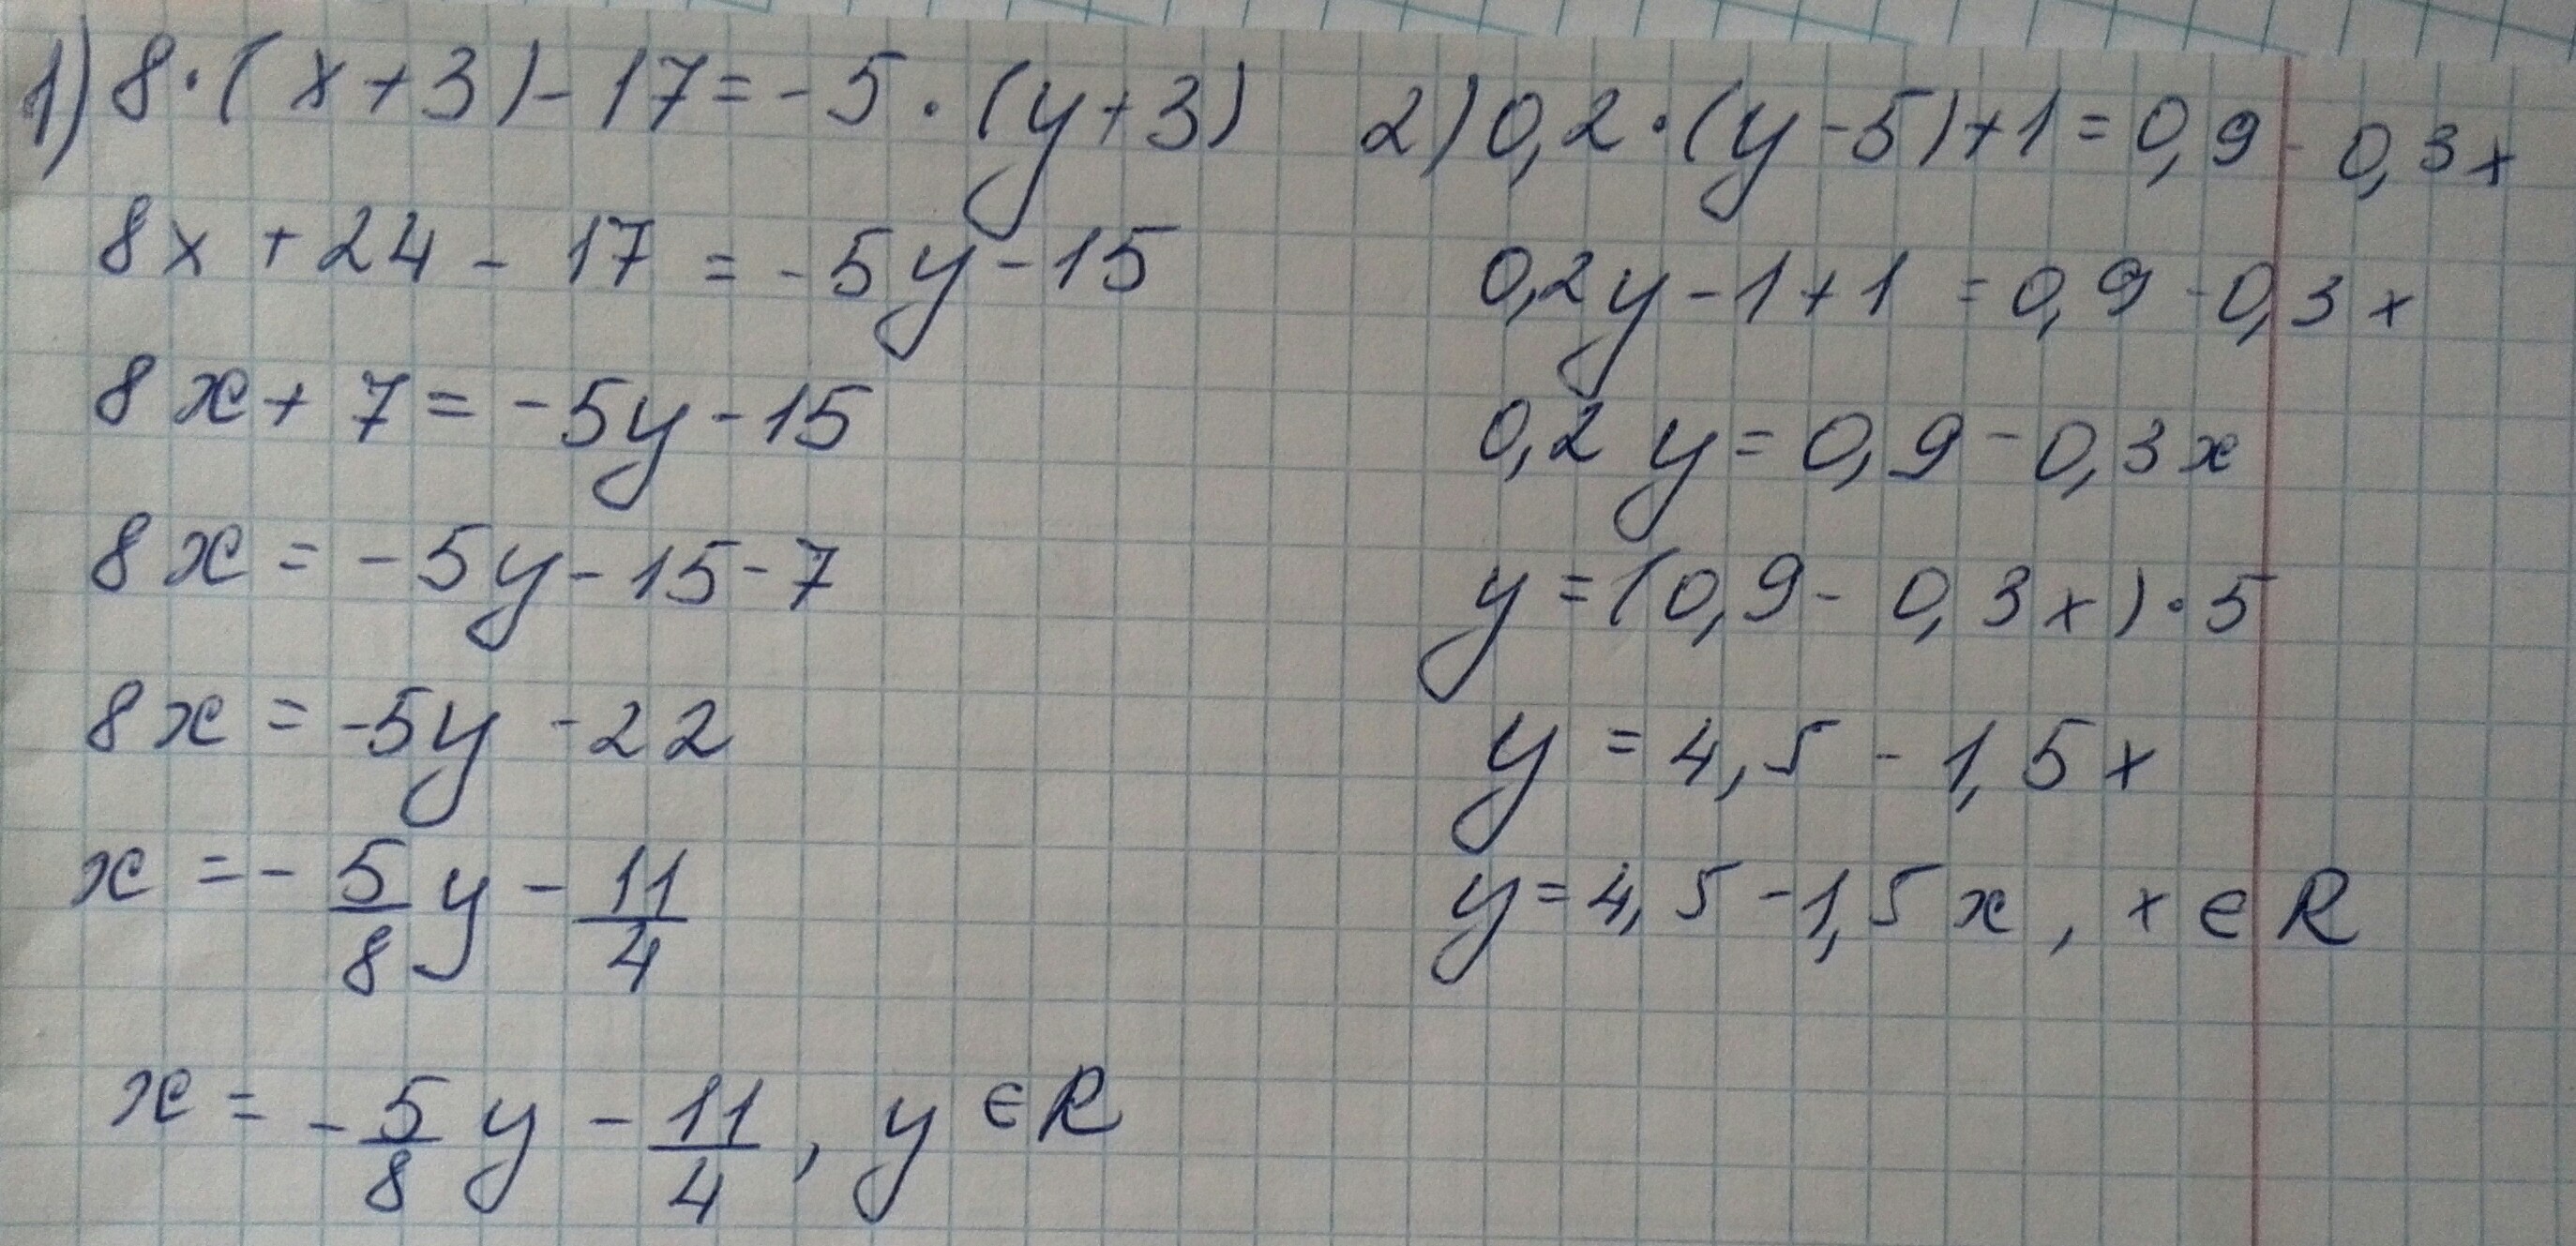 1) 8·(x+3)-17=-5·(y+3)
8x+24-17=-5y-15
8x+7=-5y-15
8x=-5y-15-7
8x=-5y-22
x=-5/8y-11/4
x=-5/8y-11/4, y∈R
2) 0,2·(y-5)+1=0,9-0,3x
0,2y-1+1=0,9-0,3x
0,2y=0,9-0,3x
y=(0,9-0,3x)·5
y=4,5-1,5x
y=4,5-1,5x, x∈R